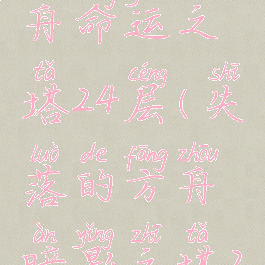 舟命运之
tǎ céng shī
塔24层(失
luò de fāng zhōu
落的方舟
àn yǐng zhī tǎ
暗影之塔)